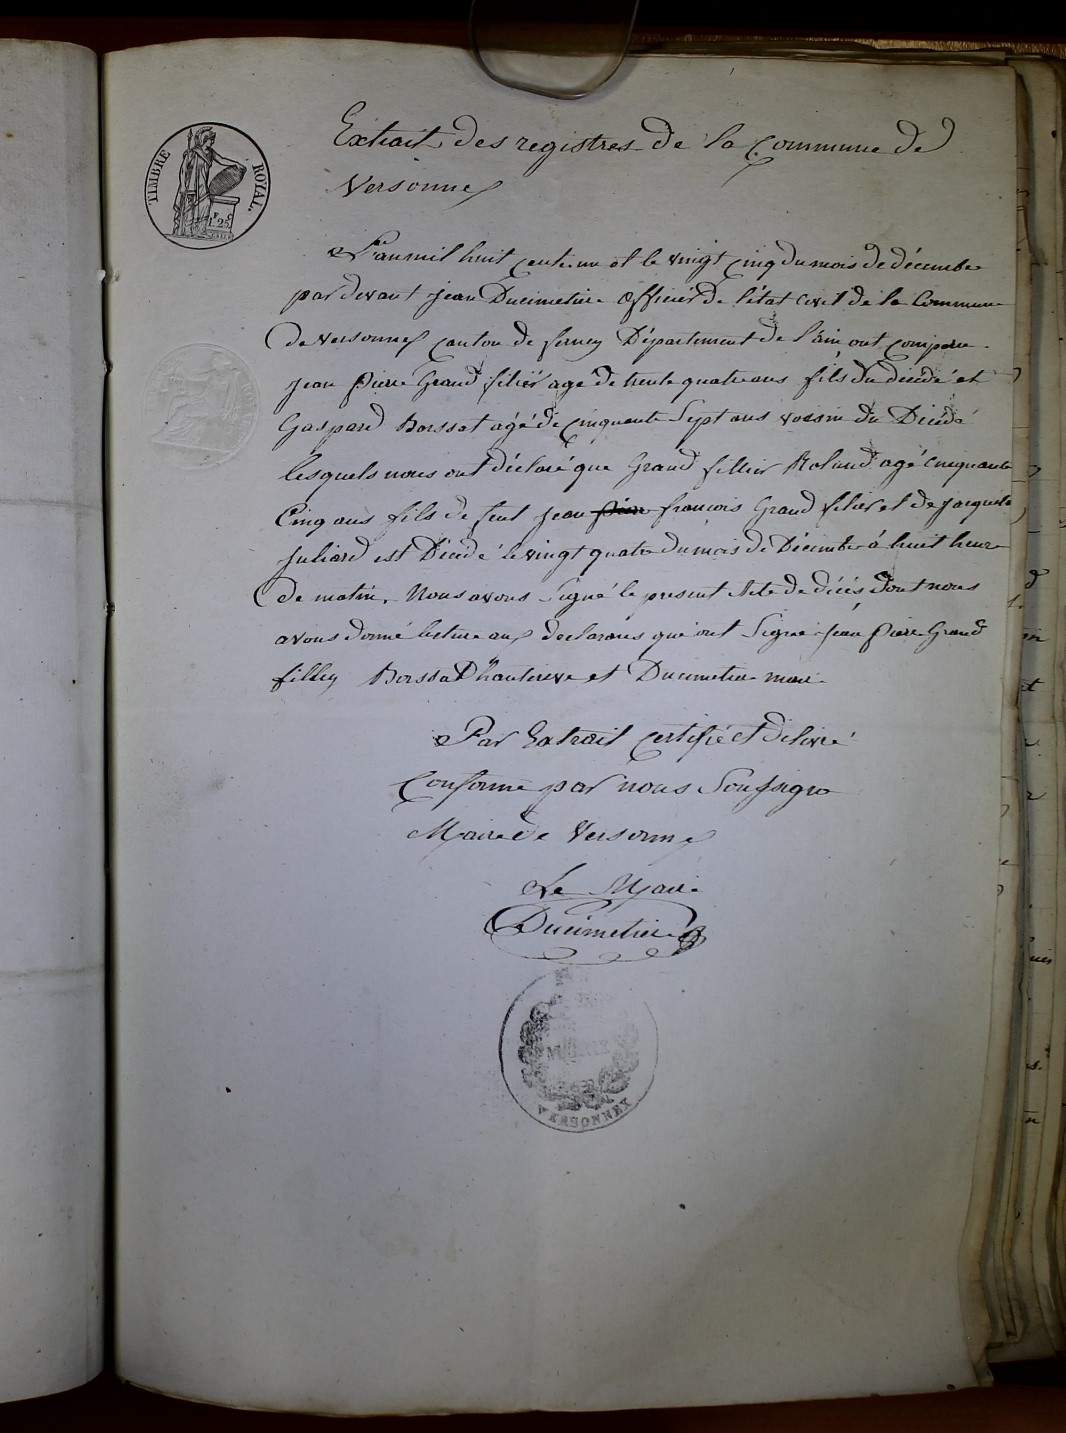 TIMBRE ROYAL.
1 F 25 C
Extrait des registres de la Commune de
Versonnex
L'an mil huit cent un et le vingt cinq du mois de décembre
par devant Jean Ducimetiere officier de l'état civil de la Commune
de Versonnex canton de ferney Département de l'ain ont comparu
Jean Pierre Grand filier agé de trente quatre ans fils du décédé et
Gaspard Borssat agé de cinquante Sept ans voisin du Décédé
lesquels nous ont déclaré que Grand fillier Roland agé cinquante
Cinq ans fils de feut Jean pierre françois Grand filier et de jaqueline
Juliard est Décédé le vingt quatre du mois de Décembre à huit heure
de matin. Nous avons Signé le present Acte de décés dont nous
avons donné lecture aux declarans qui ont Signé Jean Pierre Grand
filley Borssat D'hauterive et Ducimetiere maire
Par Extrait certifié et délivré
Conforme par nous Soussigné
Maire de Versonnex
Le Maire
Ducimetiere
MAIRIE
VERSONNEX